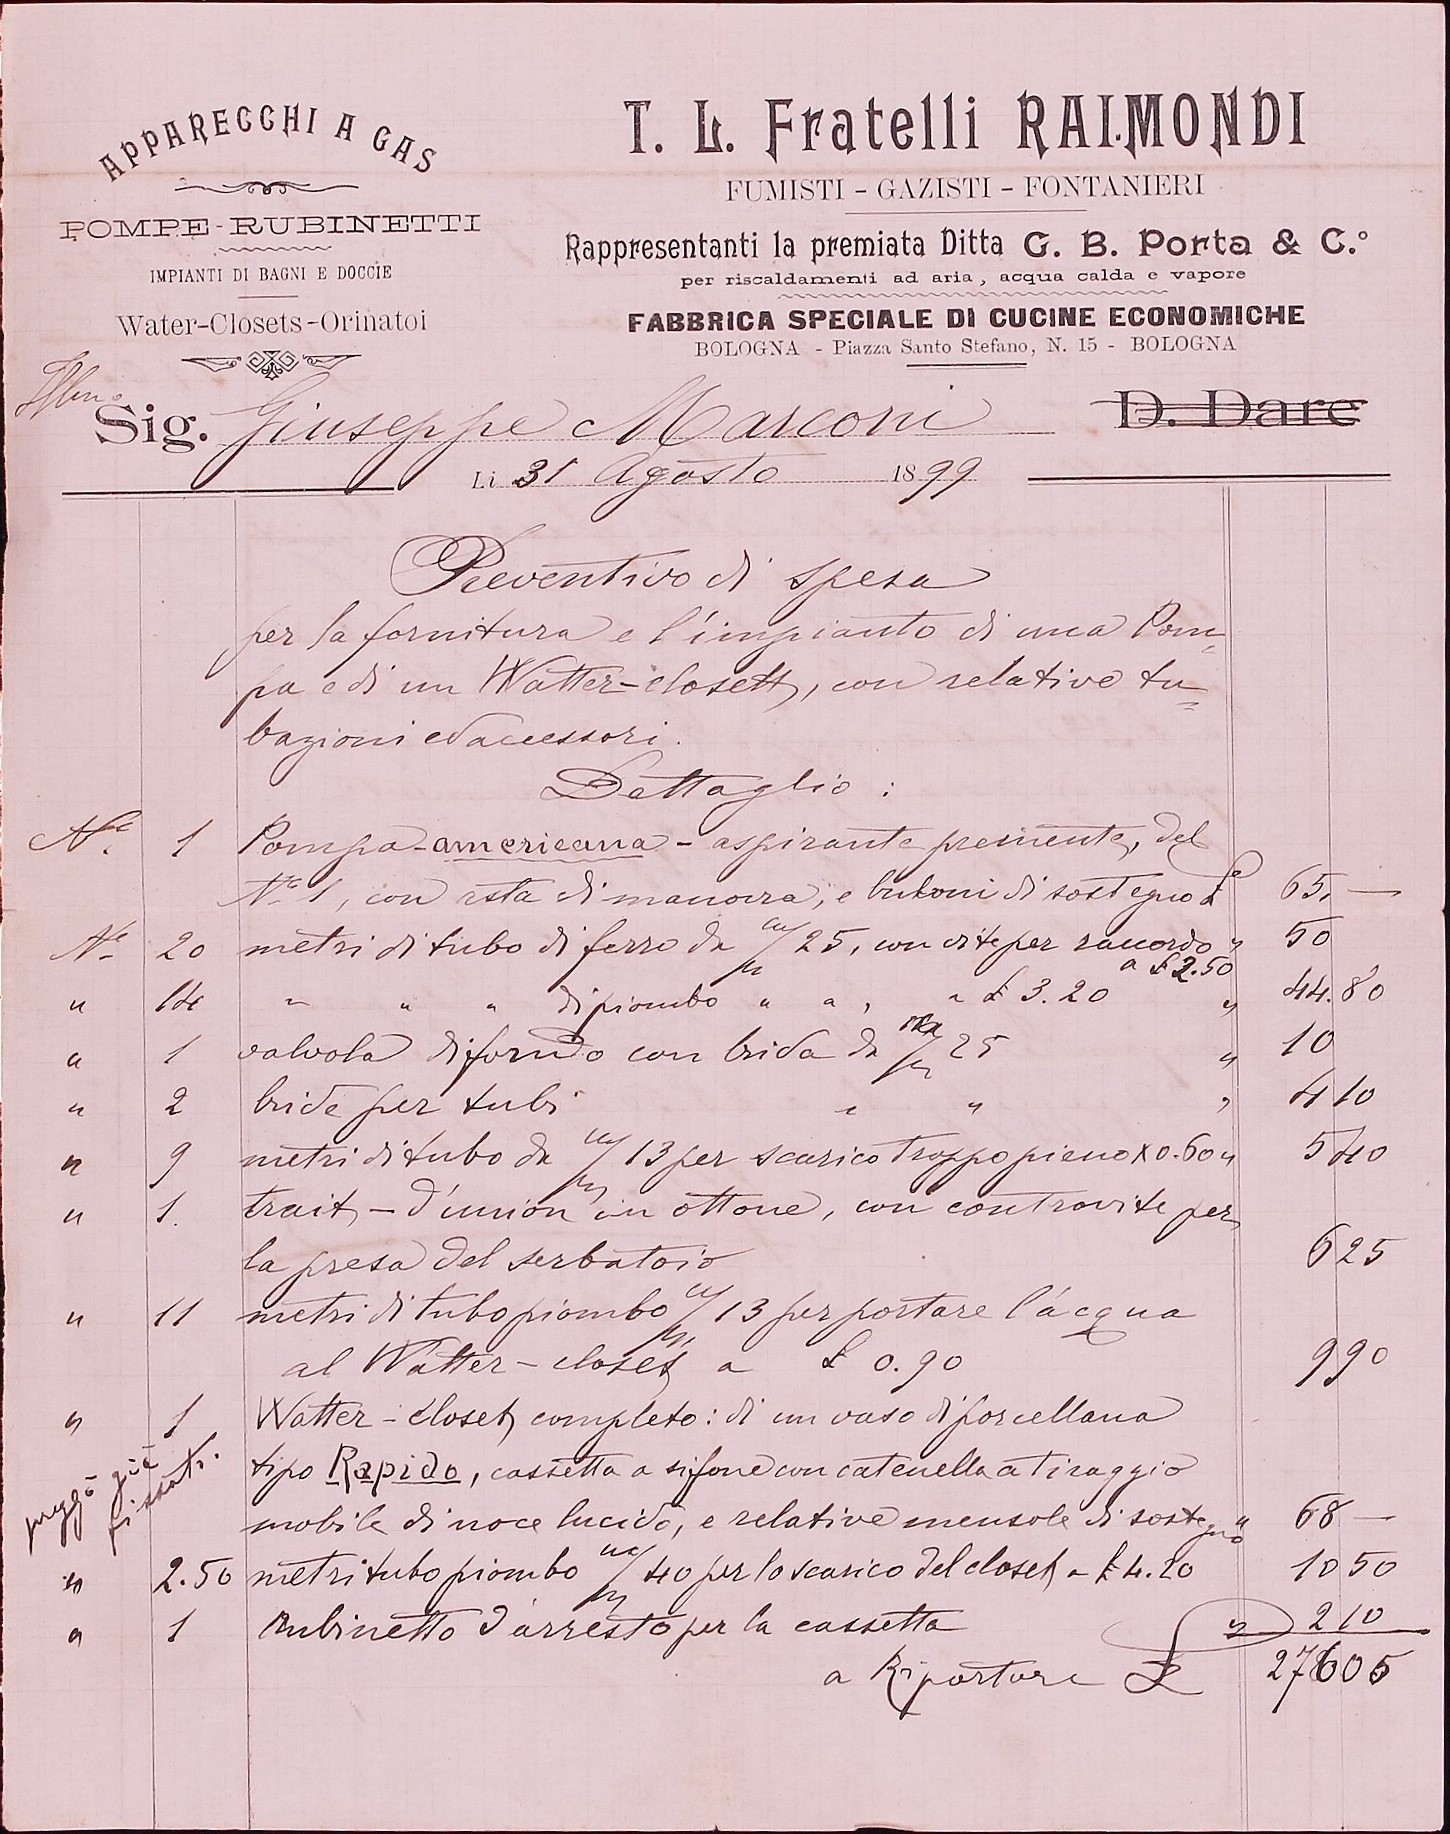 APPARECCHI A GAS
POMPE-RUBINETTI
IMPIANTI DI BAGNI E DOCCIE
Water-Closets-Orinatoi
T. L. Fratelli RAIMONDI
FUMISTI - GAZISTI - FONTANIERI
Rappresentanti la premiata Ditta G. B. Porta & C.°
per riscaldamenti ad aria, acqua calda e vapore
FABBRICA SPECIALE DI CUCINE ECONOMICHE
BOLOGNA - Piazza Santo Stefano, N. 15 - BOLOGNA
Sig. Giuseppe Marconi D. Dare
Li 31 Agosto 1899
Preventivo di spesa
per la fornitura e l'impianto di una Pom=
pa e di un Watter-closett, con relative tu=
bazioni ed accessori.
Dettaglio:
N.° 1 Pompa-americana - aspirante premente, del
N.° 1, con asta di manovra, e bulconi di sostegno £ 65. —
N.° 20 metri di tubo di ferro da m/m 25, con vite per raccordo " 50
a £ 2.50
" 14 " " " di piombo " " , a £ 3.20 " 44.80
" 1 valvola di fondo con brida da m/m 25 " 10
" 2 bride per tubi " " " 4 10
" 9 metri di tubo da m/m 13 per scarico troppo pieno x 0.60 " 5 40
" 1. trait-d'union in ottone, con controvite per
la presa del serbatoio 6 25
" 11 metri di tubo piombo m/m 13 per portare l'acqua
al Watter-closet a £ 0.90 9 90
" 1 Watter-closet completo: di un vaso di porcellana
tipo Rapido, cassetta a sifone con catenella a tiraggio
mobile di noce lucido, e relative mensole di sostegno " 68 —
prezzo già
fissati.
" 2.50 metri tubo piombo m/m 40 per lo scarico del closet a £ 4.20 10 50
" 1 Rubinetto d'arresto per la cassetta " 2 10
a Riportare £ 276 05